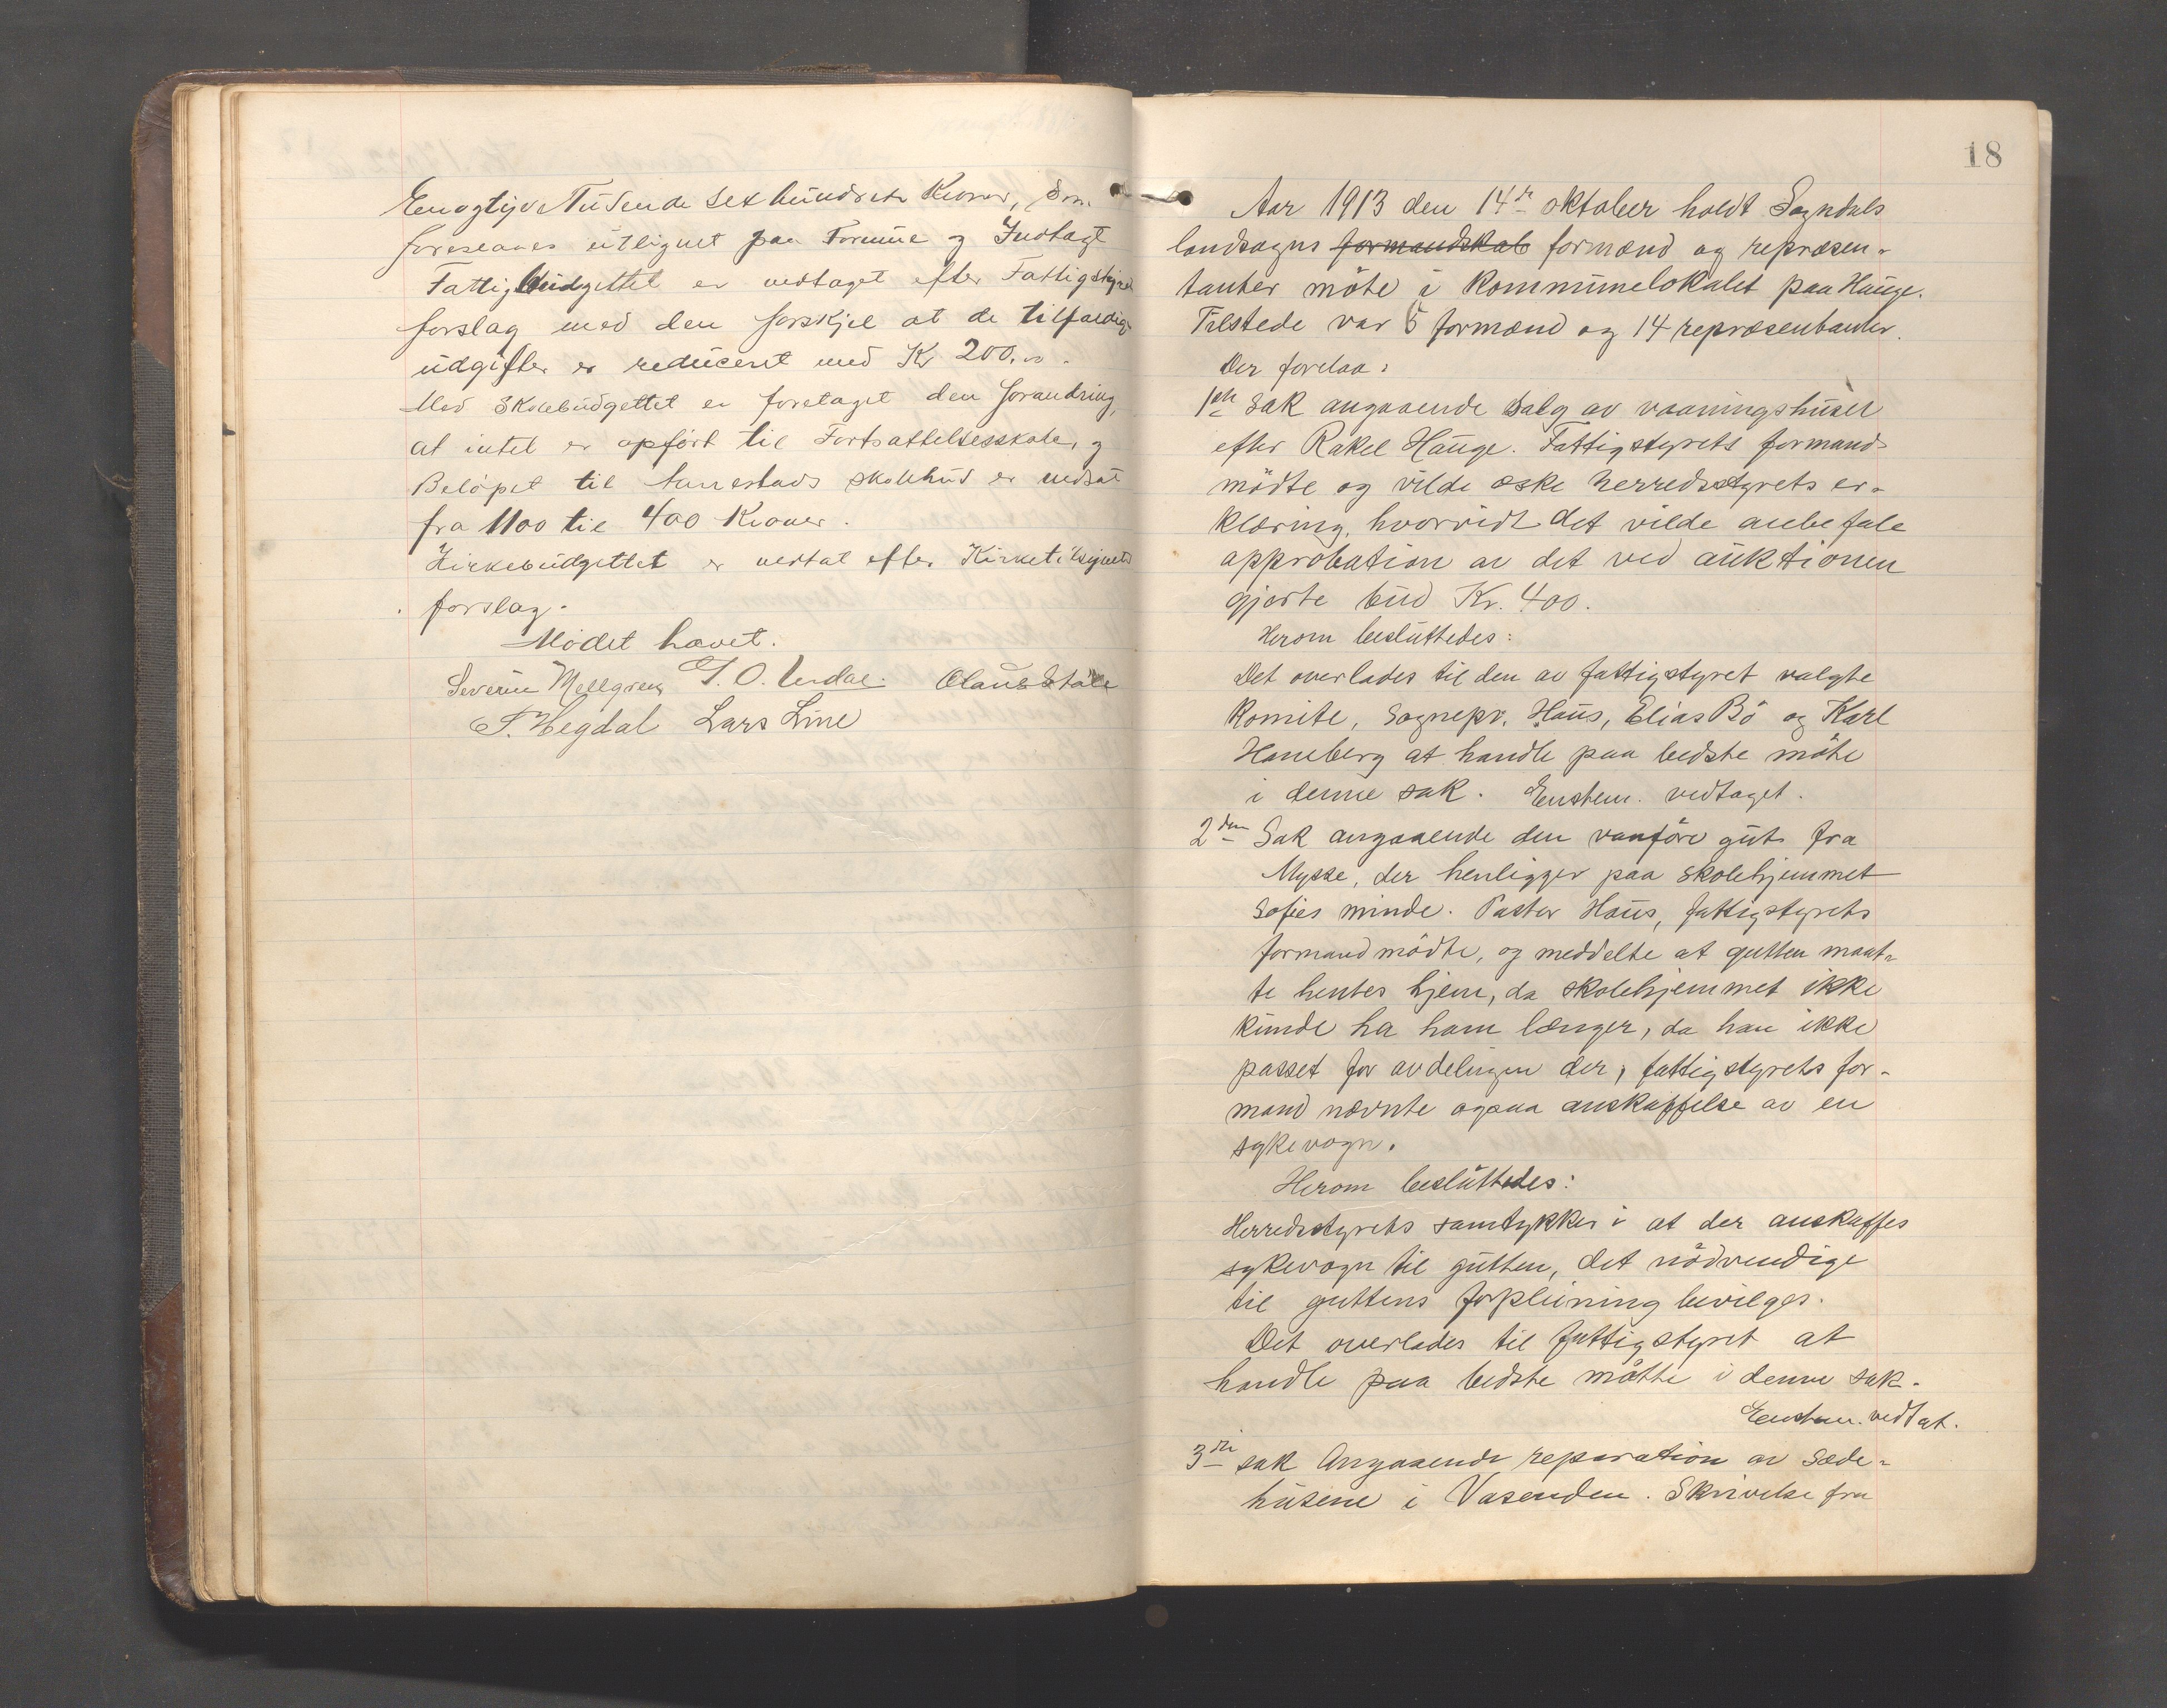 Enogtyve Tusende sex hundrede Kroner, som
foreslaaes utlignet paa Formue og Indtægt
Fattigbudgettet er vedtaget efter Fattigstyrets
forslag med den forskjel at de tilfældige
udgifter er reduceret med Kr 200.00.
Med Skolebudgettet er foretaget den forandring,
at intet er opført til Fortsættelsesskole, og
Beløpet til skolehus er nedsat
fra 1100 til 400 Kroner.
Kirkebudgettet er vedtat efter Kirketilsynets
forslag.
Mødet hævet.
Severin Mellgren T. O. Urdal. Olaus Støle
T. Hegdal Lars Line
18
Aar 1913 den 14de oktober holdt Sogndals
landsogns formandskab formænd og repræsen-
tanter møte i Kommunelokalet paa Hauge.
Tilstede var 5 formænd og 14 repræsentanter.
Der forelaa:
1ste Sak angaaende Salg av vaaningshuset
efter Rakel Hauge. Fattigstyrets formand
mødte og vilde æske herredsstyrets er-
klæring, hvorvidt det vilde anbefale
approbation av det ved auktionen
gjorte bud Kr. 400.
Herom besluttedes:
Det overlades til den av fattigstyret valgte
Komite, Sognepr. Haus, Elias Bö og Karl
Haneberg at handle paa bedste måte
i denne sak. Enstem. vedtaget.
2den Sak angaaende den vanføre gut fra
Mysse, der henligger paa skolehjemmet
Sofies minde. Pastor Haus, fattigstyrets
formand mødte, og meddelte at gutten maat-
te hentes hjem, da skolehjemmet ikke
kunde ha ham længer, da han ikke
passet for avdelingen der, fattigstyrets for-
mand nævnte ogsaa anskaffelse av en
sykevogn.
Herom besluttedes:
Herredsstyrets samtykker i at der anskaffes
sykevogn til gutten, det nødvendige
til guttens forpleining bevilges.
Det overlades til fattigstyret at
handle paa bedste måtte i denne sak.
Enstem. vedtat.
3die sak Angaaende reparation av Sæde-
husene i Vasenden. Skrivelse fra